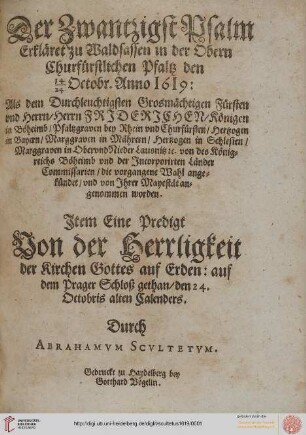 Der Zwantzigst Psalm
Erkläret zu Waldsassen in der Obern
Churfürstlichen Pfaltz den
14/24 Octobr. Anno 1619:
Als dem Durchleuchtigsten Grosmächtigen Fürsten
und Herrn/Herrn FRIDERICHEN/Königen
in Böheimb/Pfaltzgraven bey Rhein und Churfürsten/Hertzogen
in Bayern/Marggraven in Mähren/Hertzogen in Schlesien/
Marggraven in Ober und Nider Lausnitz etc. von des König-
reichs Böheimb und der Incorporirten Länder
Commissarien/die vorgangene Wahl ange-
kündet/und von Ihrer Mayestät an-
genommen worden.
Item Eine Predigt
Von der Herrligkeit
der Kirchen Gottes auf Erden: auf
dem Prager Schloß gethan/den 24.
Octobris alten Calenders.
Durch
ABRAHAMVM SCVLTETVM.
Gedruckt zu Haydelberg bey
Gotthard Vögelin.
http://digi.ub.uni-heidelberg.de/diglit/scultetus1619/0001